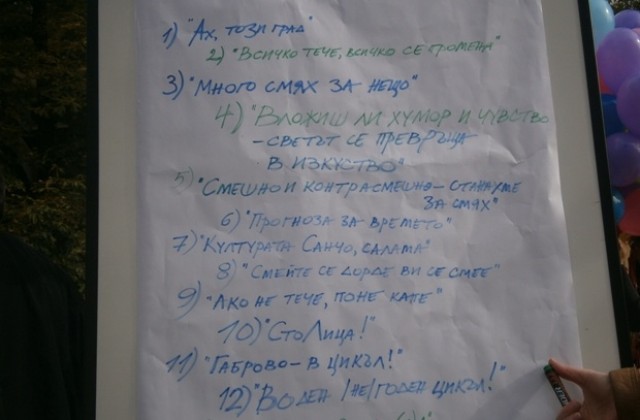 1) "Ах, този град"
2) "Всичко тече, всичко се променя"
3) "Много смях за нещо"
4) "Вложиш ли хумор и чувство
- светът се превръща
в изкуство"
5) "Смешно и контрасмешно - станахме
за смях"
6) "Прогноза за времето"
7) "Културата Санчо, салама"
8) "Смейте се дорде ви се смее"
9) "Ако не тече, поне капе"
10) "СтоЛица!"
11) "Габрово - в цикъл!"
12) "Воден /не/годен цикъл!"